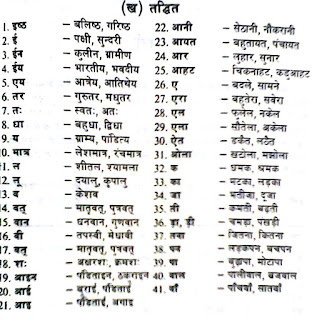 (ख) तद्धित
1. इष्ठ – बलिष्ठ, गरिष्ठ
2. ई – पक्षी, सुन्दरी
3. ईन – कुलीन, ग्रामीण
4. ईय – भारतीय, भवदीय
5. एय – आत्रेय, आतिथेय
6. तर – गुरुतर, मधुतर
7. तः – स्वतः, अतः
8. धा – बहुधा, द्विधा
9. य – ग्राम्य, पांडित्य
10. मात्र – लेशमात्र, रंचमात्र
11. ल – शीतल, श्यामल
12. लू – दयालु, कृपालु
13. व – केशव
14. वत् – मातृवत्, पुत्रवत्
15. वान – धनवान, गुणवान
16. वी – तपस्वी, मेधावी
17. वत् – मातृवत्, पुत्रवत्
18. शः – अक्षरशः, क्रमशः
19. आइन – पंडिताइन, ठकुराइन
20. आई – बुराई, पंडिताई
21. आइ – पंडिताई,
22. आनी – सेठानी, नौकरानी
23. आयत – बहुतायत, पंचायत
24. आर – लुहार, सुनार
25. आहट – चिकनाहट, कड़ुआहट
26. ए – बदले, सामने
27. एरा – बहुतेरा, सवेरा
28. एल – फुलेल, नकेल
29. एला – सौतेला, अकेला
30. ऐत – डकैत, लठैत
31. ओला – खटोला, मझोला
32. क – धमक,
33. का – मटका, लड़का
34. जा – भतीजा, दूजा
35. ती – कमती, बढ़ती
36. ड़ा, ड़ी – चमड़ा, पंखड़ी
37. तना – जितना, कितना
38. पन – लड़कपन, बचपन
39. पा – बुढ़ापा, मोटापा
40. वाल – पालीवाल, ब्रजवाल
41. वाँ – पाँचवाँ, सातवाँ